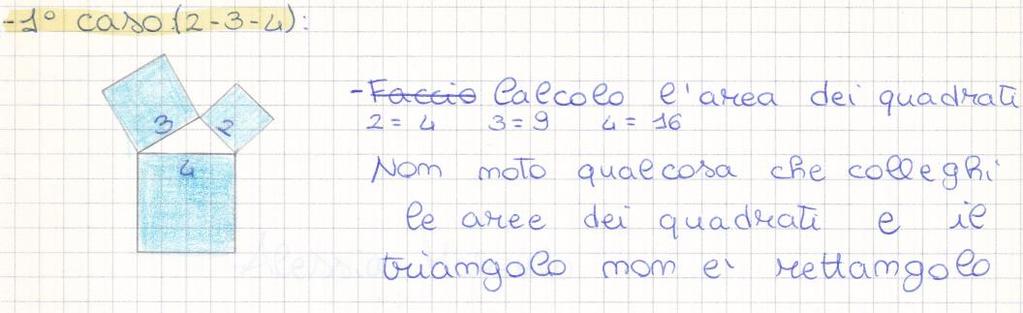 -1° caso (2-3-4):
3
2
4
-Faccio Calcolo l'area dei quadrati
2 = 4 3 = 9 4 = 16
Non noto qualcosa che colleghi
le aree dei quadrati e il
triangolo non è rettangolo